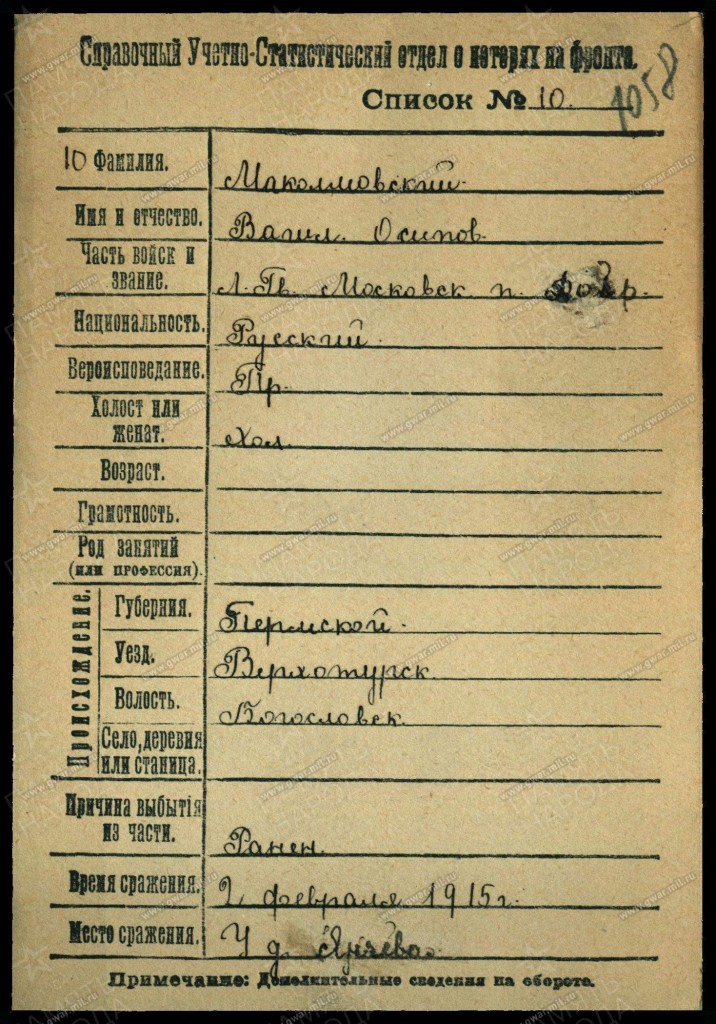 Справочный Учетно-Статистический отдел о потерях на фронте.
1058
Список № 10.
10 Фамилия. Маколмовский
Имя и отчество. Васил. Осипов.
Часть войск и звание. Л. Гв. Московск. п.
Национальность. Русский.
Вероисповедание. Пр.
Холост или женат. Хол.
Возраст.
Грамотность.
Род занятий (или профессия).
Происхождение.
Губерния. Пермской.
Уезд. Верхотурск.
Волость. Богословск.
Село, деревня или станица.
Причина выбытія из части. Ранен.
Время сражения. 2 февраля 1915 г.
Место сражения. У д.
Примечание: Дополнительные сведения на обороте.